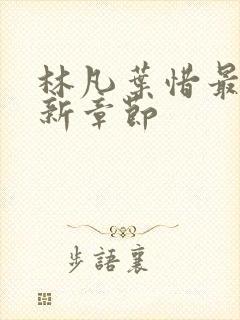 林凡葉惜最
新章節
步語襄